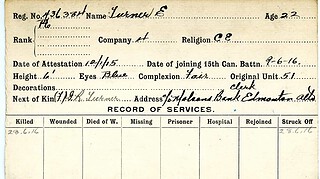 Reg. No. 436384 Name Turner E Age 22
Rank Pte Company Religion C E
Date of Attestation 12/1/15 Date of joining 15th Can. Battn. 9-6-16.
Height 6' Eyes Blue Complexion Fair Original Unit 51
Decorations Clerk
Next of Kin (F) R. Turner Address c/o Molsons Bank Edmonton Alta
RECORD OF SERVICES.
Killed Wounded Died of W. Missing Prisoner Hospital Rejoined Struck Off
23.6.16 23.6.16